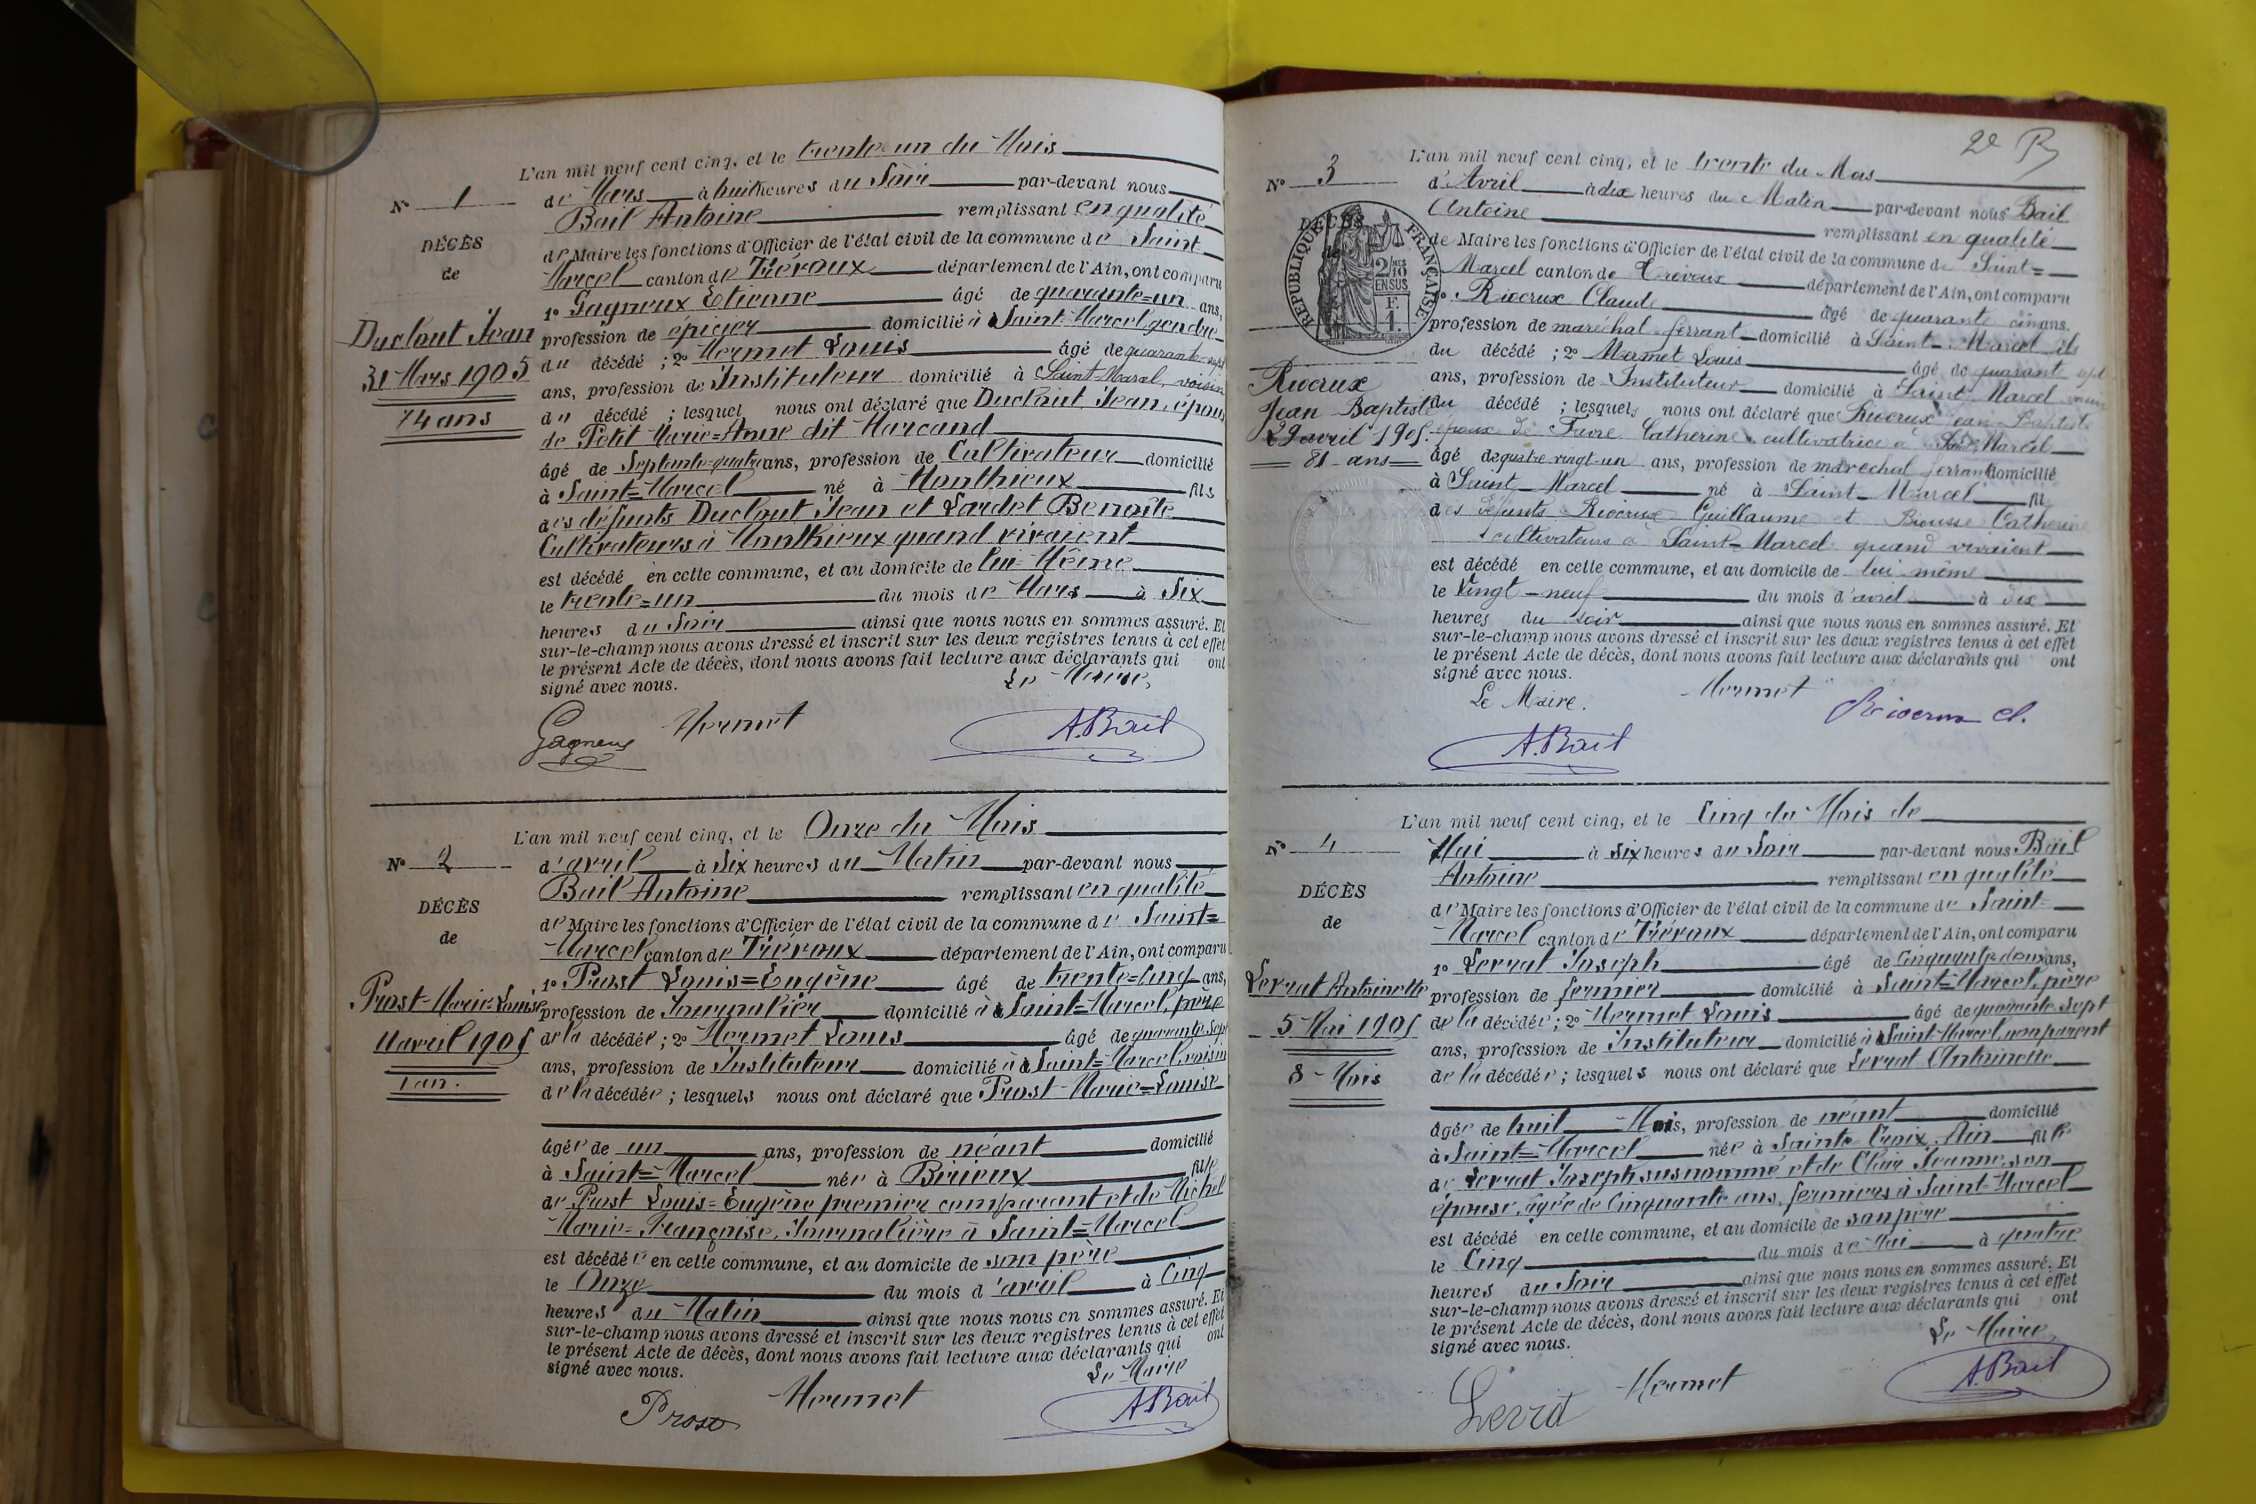 L'an mil neuf cent cinq, et le trente=un du Mois
N° 1
de Mars à huit heures du Soir par-devant nous
Bail Antoine remplissant en qualité
DÉCÈS
de Maire les fonctions d'Officier de l'état civil de la commune de Saint
de
Marcel canton de Trévoux département de l'Ain, ont comparu
1° Gagneux Etienne âgé de quarante=un ans,
Duclout Jean
profession de épicier domicilié à Saint-Marcel gendre
31 Mars 1905
du décédé ; 2° Mermet Louis âgé de quarante-sept
ans, profession de Instituteur domicilié à Saint-Marcel, voisin
74 ans
du décédé ; lesquel nous ont déclaré que Duclout Jean, époux
de Petit Marie=Anne dit Marcand
âgé de Septante-quatre ans, profession de Cultivateur domicilié
à Saint=Marcel né à Monthieux fils
des défunts Duclout Jean et Lardet Benoîte
Cultivateurs à Monthieux quand vivaient
est décédé en cette commune, et au domicile de lui-Même
le trente=un du mois de Mars à Six
heures du Soir ainsi que nous nous en sommes assuré. Et
sur-le-champ nous avons dressé et inscrit sur les deux registres tenus à cet effet
le présent Acte de décès, dont nous avons fait lecture aux déclarants qui ont
signé avec nous.
Le Maire,
Gagneux Mermet A. Bail
L'an mil neuf cent cinq, et le Onze du Mois
N° 2
d'avril à Six heures du Matin par-devant nous
Bail Antoine remplissant en qualité
DÉCÈS
de Maire les fonctions d'Officier de l'état civil de la commune de Saint=
de
Marcel canton de Trévoux département de l'Ain, ont comparu
1° Prost Louis=Eugène âgé de trente=cinq ans,
Prost-Marie=Louise
profession de Journalier domicilié à Saint=Marcel, père
11 avril 1905
de la décédée ; 2° Mermet Louis âgé de quarante sept
ans, profession de Instituteur domicilié à Saint=Marcel, voisin
1 an.
de la décédée ; lesquels nous ont déclaré que Prost-Marie=Louise
âgée de un ans, profession de néant domicilié
à Saint=Marcel née à Birieux fille
de Prost Louis=Eugène premier comparant et de Michel
Marie=Françoise, Journalière à Saint=Marcel
est décédée en cette commune, et au domicile de son père
le Onze du mois d'avril à Cinq
heures du Matin ainsi que nous nous en sommes assuré. Et
sur-le-champ nous avons dressé et inscrit sur les deux registres tenus à cet effet
le présent Acte de décès, dont nous avons fait lecture aux déclarants qui ont
signé avec nous.
Le Maire
Prost Mermet A. Bail
2e
L'an mil neuf cent cinq, et le trente du Mois
N° 3
d'Avril à dix heures du Matin par-devant nous Bail
Antoine remplissant en qualité
DÉCÈS
de
RÉPUBLIQUE FRANÇAISE
2/10
EN SUS
F.
1.
de Maire les fonctions d'Officier de l'état civil de la commune de Saint=
Marcel canton de Trévoux département de l'Ain, ont comparu
1° Rivoux Claude âgé de quarante cinq ans.
profession de maréchal-ferrant domicilié à Saint-Marcel fils
du décédé ; 2° Mermet Louis âgé de quarante sept
ans, profession de Instituteur domicilié à Saint Marcel voisin
Jean Baptiste
29 avril 1905.
81 ans
du décédé ; lesquels nous ont déclaré que Jean Baptiste
époux de Favre Catherine cultivatrice à Saint Marcel
âgé de quatre vingt-un ans, profession de maréchal ferrant domicilié
à Saint-Marcel né à Saint-Marcel fil
des défunts Guillaume et Catherine
cultivateurs à Saint-Marcel quand vivaient
est décédé en cette commune, et au domicile de lui même
le Vingt-neuf du mois d'avril à dix
heures du soir ainsi que nous nous en sommes assuré. Et
sur-le-champ nous avons dressé et inscrit sur les deux registres tenus à cet effet
le présent Acte de décès, dont nous avons fait lecture aux déclarants qui ont
signé avec nous.
Le Maire. Mermet
A. Bail
L'an mil neuf cent cinq, et le Cinq du Mois de
N° 4
Mai à Six heures du Soir par-devant nous Bail
Antoine remplissant en qualité
DÉCÈS
de Maire les fonctions d'Officier de l'état civil de la commune de Saint-
de
Marcel canton de Trévoux département de l'Ain, ont comparu
1° Levrat Joseph âgé de Cinquante-deux ans,
Levrat Antoinette
profession de fermier domicilié à Saint=Marcel, père
5 Mai 1905
de la décédée ; 2° Mermet Louis âgé de quarante sept
ans, profession de Instituteur domicilié à Saint-Marcel, non parent
8-Mois
de la décédée ; lesquels nous ont déclaré que Levrat Antoinette
âgée de huit Mois, profession de néant domicilié
à Saint=Marcel née à Sainte Croix, Ain fille
de Levrat Joseph susnommé et de Clair Jeanne, son
épouse, âgée de Cinquante ans, fermiers à Saint-Marcel
est décédé en cette commune, et au domicile de son père
le Cinq du mois de Mai à quatre
heures du Soir ainsi que nous nous en sommes assuré. Et
sur-le-champ nous avons dressé et inscrit sur les deux registres tenus à cet effet
le présent Acte de décès, dont nous avons fait lecture aux déclarants qui ont
signé avec nous.
Le Maire,
Mermet A. Bail